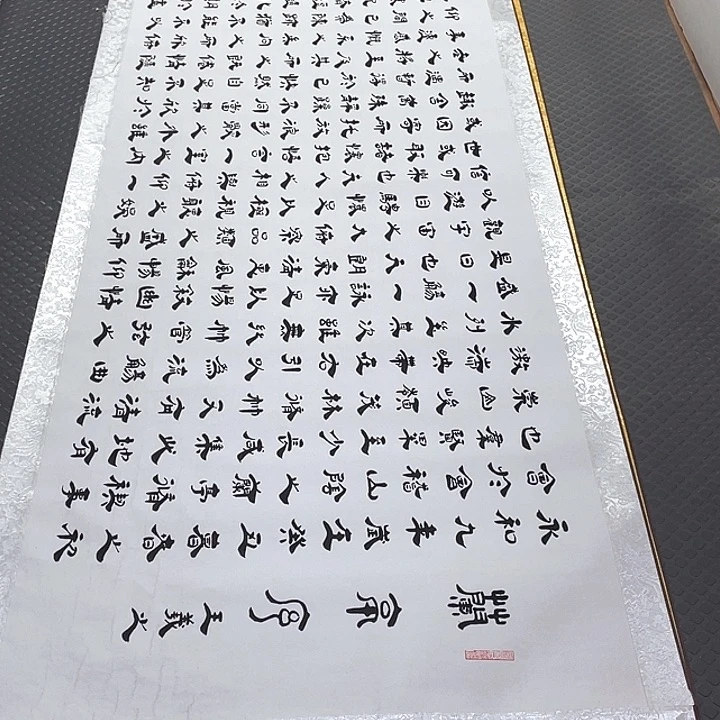 蘭亭序王羲之
永和九年歲在癸丑暮春之初
會於會稽山陰之蘭亭脩禊事
也羣賢畢至少長咸集此地有
崇山峻領茂林脩竹又有清流
激湍映帶左右引以為流觴曲
水列坐其次雖無絲竹管弦之
盛一觴一詠亦足以暢敘幽情
是日也天朗氣清惠風和暢仰
觀宇宙之大俯察品類之盛所
以遊目騁懷足以極視聽之娛
信可樂也夫人之相與俯仰一
世或取諸懷抱悟言一室之內
或因寄所託放浪形骸之外雖
趣舍萬殊靜躁不同當其欣於
所遇暫得於己快然自足不知
老之將至及其所之既惓情隨
事遷感慨係之矣向之所欣俛
仰之間已為陳跡猶不能不以